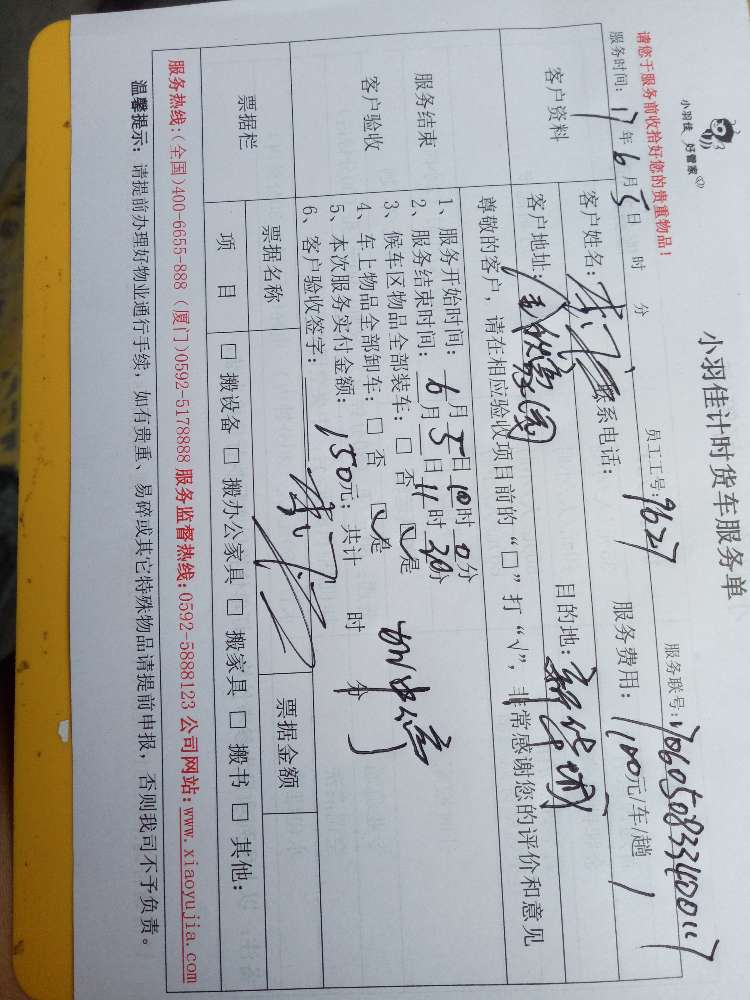 小羽佳 好管家
小羽佳计时货车服务单
请您于服务前收拾好您的贵重物品！
服务联号：
服务时间：17年6月5日 时 分
员工工号：9627
服务费用：100元/车/趟
客户资料
客户姓名：
联系电话：
客户地址：
目的地：新华城
尊敬的客户，请在相应验收项目前的“□”打“√”，非常感谢您的评价和意见
服务结束
客户验收
1、服务开始时间：6月5日10时0分
2、服务结束时间：6月5日11时30分
3、候车区物品全部装车：□ 否 ☑是
4、车上物品全部卸车：□ 否 ☑是
5、本次服务实付金额：150元；共计 时 分
6、客户验收签字：
票据栏
票据名称
票据金额
项 目
□ 搬设备 □ 搬办公家具 □ 搬家具 □ 搬书 □ 其他：
服务热线：(全国)400-6655-888 (厦门)0592-5178888 服务监督热线：0592-5888123 公司网站：www.xiaoyujia.com
温馨提示：请提前办理好物业通行手续，如有贵重、易碎或其它特殊物品请提前申报，否则我司不予负责。